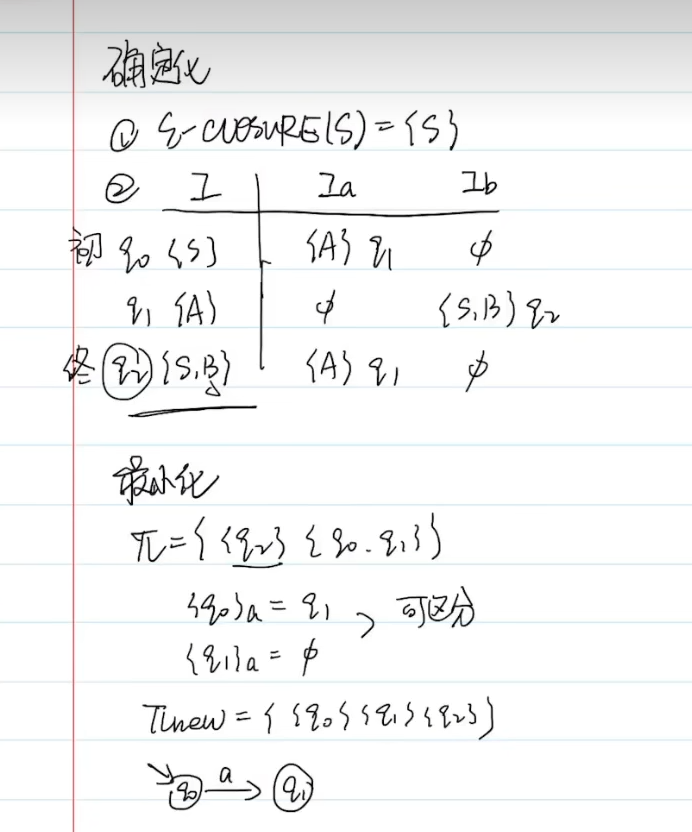 确定化
① ε-CLOSURE(S)={S}
② I Ia Ib
初 q0 {S} {A} q1 φ
q1 {A} φ {S,B} q2
终 q2 {S,B} {A} q1 φ
最小化
π={ {q2} {q0.q1} }
{q0}a = q1 > 可区分
{q1}a = φ
πnew = { {q0} {q1} {q2} }
q0 a q1